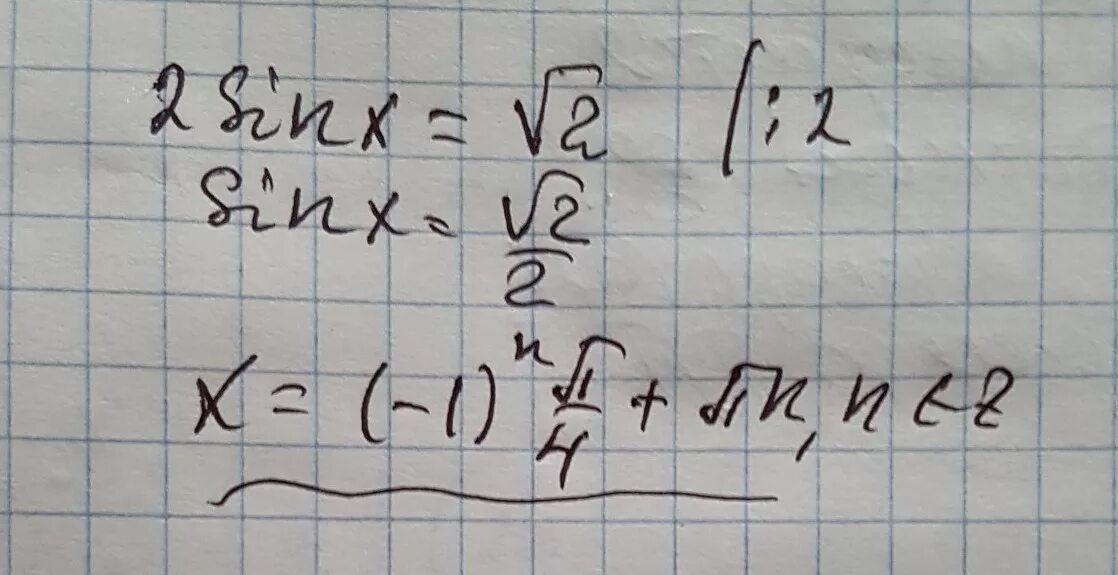 2 sin x = √2 | : 2
sin x = √2/2
x = (-1)^n π/4 + πn, n ∈ Z